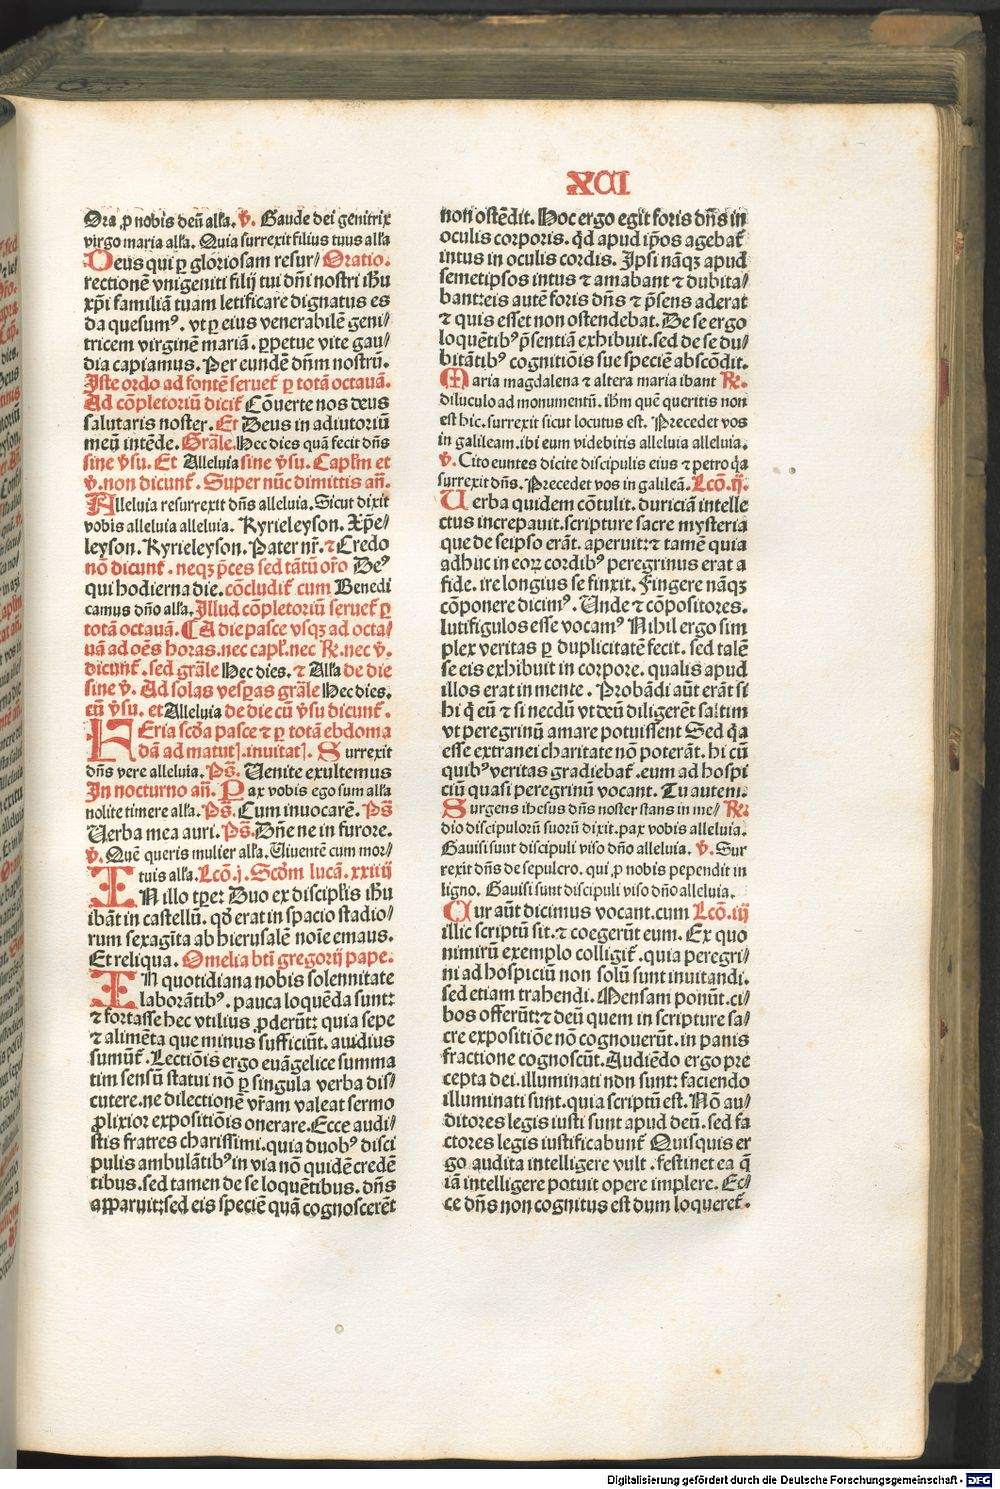 XCI
Ora ꝓ nobis deū alľa. ꝟ. Gaude dei genitrix
virgo maria alľa. Quia surrexit filius tuus alľa
Deus qui ꝑ gloriosam resur⸗ Oratio.
rectionē vnigeniti filij tui dn̄i nostri ihū
xp̄i familiā tuam letificare dignatus es
da quesumꝰ. vt ꝑ eius venerabilē geni⸗
tricem virginē mariā. ꝑpetue vite gau⸗
dia capiamus. Per eundē dn̄m nostrū.
Iste ordo ad fontē serueť ꝑ totā octauā.
Ad cōpletoriū diciť Cōuerte nos deus
salutaris noster. Et Deus in adiutoriū
meū intēde. Grāle. Hec dies quā fecit dn̄s
sine ꝟsu. Et Alleluia sine ꝟsu. Caplm̄ et
ꝟ. non dicunť. Super nūc dimittis an̄.
Alleluia resurrexit dn̄s alleluia. Sicut dixit
vobis alleluia alleluia. Kyrieleyson. Xp̄e⸗
leyson. Kyrieleyson. Pater nr̄. ⁊ Credo
nō dicunť. neqꝫ p̄ces sed tātū oro᷒ Deꝰ
qui hodierna die. cōcludiť cum Benedi
camus dn̄o alľa. Illud cōpletoriū serueť ꝑ
totā octauā. ⸿ A die pasce vsqꝫ ad octa⸗
uā ad oēs horas. nec capľ. nec ℟. nec ꝟ.
dicunť. sed grāle Hec dies. ⁊ Alľa de die
sine ꝟ. Ad solas vesꝑas grāle Hec dies.
cū ꝟsu. et Alleluia de die cū ꝟsu dicunť.
Feria scd̄a pasce ⁊ ꝑ totā ebdoma
dā ad matuť. inuitať. Surrexit
dn̄s vere alleluia. Ps̄. Uenite exultemus
In nocturno an̄. Pax vobis ego sum alľa
nolite timere alľa. Ps̄. Cum inuocarē. Ps̄
Uerba mea auri. Ps̄. Dn̄e ne in furore.
ꝟ. Quē queris mulier alľa. Uiuentē cum mor⸗
tuis alľa. Lcō. j. Scd̄m lucā. xxiiij
In illo tp̄e: Duo ex discipľis ihū
ibāt in castellū. qd̄ erat in spacio stadio⸗
rum sexagīta ab hierusalē noīe emaus.
Et reliqua. Omelia btī gregorij pape.
In quotidiana nobis solennitate
laborātibꝰ. pauca loquēda sunt:
⁊ fortasse hec vtilius ꝓderūt: quia sepe
⁊ alimēta que minus sufficiūt. auidius
sumūť. Lectiōis ergo euāgelice summa
tim sensū statui nō ꝑ singula verba dis⸗
cutere. ne dilectionē vr̄am valeat sermo
ꝓlixior expositiōis onerare. Ecce audi⸗
stis fratres charissimi. quia duobꝰ disci
pulis ambulātibꝰ in via nō quidē credē
tibus. sed tamen de se loquētibus. dn̄s
apparuit: sed eis speciē quā cognoscerēt
non ostēdit. Hoc ergo egit foris dn̄s in
oculis corporis. qd̄ apud ip̄os agebať
intus in oculis cordis. Ipsi nāqꝫ apud
semetipsos intus ⁊ amabant ⁊ dubita⸗
bant: eis autē foris dn̄s ⁊ p̄sens aderat
⁊ quis esset non ostendebat. De se ergo
loquētibꝰ p̄sentiā exhibuit. sed de se du⸗
bitātibꝰ cognitiōis sue speciē abscōdit.
Maria magdalena ⁊ altera maria ibant ℟.
diluculo ad monumentū. ihm̄ quē queritis non
est hic. surrexit sicut locutus est. Precedet vos
in galileam. ibi eum videbitis alleluia alleluia.
ꝟ. Cito euntes dicite discipulis eius ⁊ petro qa᷒
surrexit dn̄s. Precedet vos in galileā. Lcō. ij.
Uerba quidem cōtulit. duriciā intelle
ctus increpauit. scripture sacre mysteria
que de seipso erāt. aperuit: ⁊ tamē quia
adhuc in eoꝝ cordibꝰ peregrinus erat a
fide. ire longius se finxit. Fingere nāqꝫ
cōponere dicimꝰ. Unde ⁊ cōpositores.
luti figulos esse vocamꝰ Nihil ergo sim
plex veritas ꝑ duplicitatē fecit. sed talē
se eis exhibuit in corpore. qualis apud
illos erat in mente. Probādi aūt erāt si
hi q̄ eū ⁊ si necdū vt deū diligerēt saltim
vt peregrinū amare potuissent Sed qa᷒
esse extranei charitate nō poterāt. hi cū
quibꝰ veritas gradiebať. eum ad hospi
ciū quasi peregrinū vocant. Tu autem.
Surgens ihesus dn̄s noster stans in me⸗ ℟.
dio discipulorū suorū dixit. pax vobis alleluia.
Gauisi sunt discipuli viso dn̄o alleluia. ꝟ. Sur
rexit dn̄s de sepulcro. qui ꝓ nobis pependit in
ligno. Gauisi sunt discipuli viso dn̄o alleluia.
Cur aūt dicimus vocant. cum Lcō. iij
illic scriptū sit. ⁊ coegerūt eum. Ex quo
nimirū exemplo colligiť. quia peregri⸗
ni ad hospiciū non solū sunt inuitandi.
sed etiam trahendi. Mensam ponūt. ci⸗
bos offerūt: ⁊ deū quem in scripture sa⸗
cre expositiōe nō cognouerūt. in panis
fractione cognoscūt. Audiēdo ergo pre
cepta dei. illuminati non sunt: faciendo
illuminati sunt. quia scriptū est. Nō au⸗
ditores legis iusti sunt apud deū. sed fa
ctores legis iustificabunť Quisquis er
go audita intelligere vult. festinet ea q̄
iā intelligere potuit opere implere. Ec⸗
ce dn̄s non cognitus est dum loquereť.
Digitalisierung gefördert durch die Deutsche Forschungsgemeinschaft - DFG